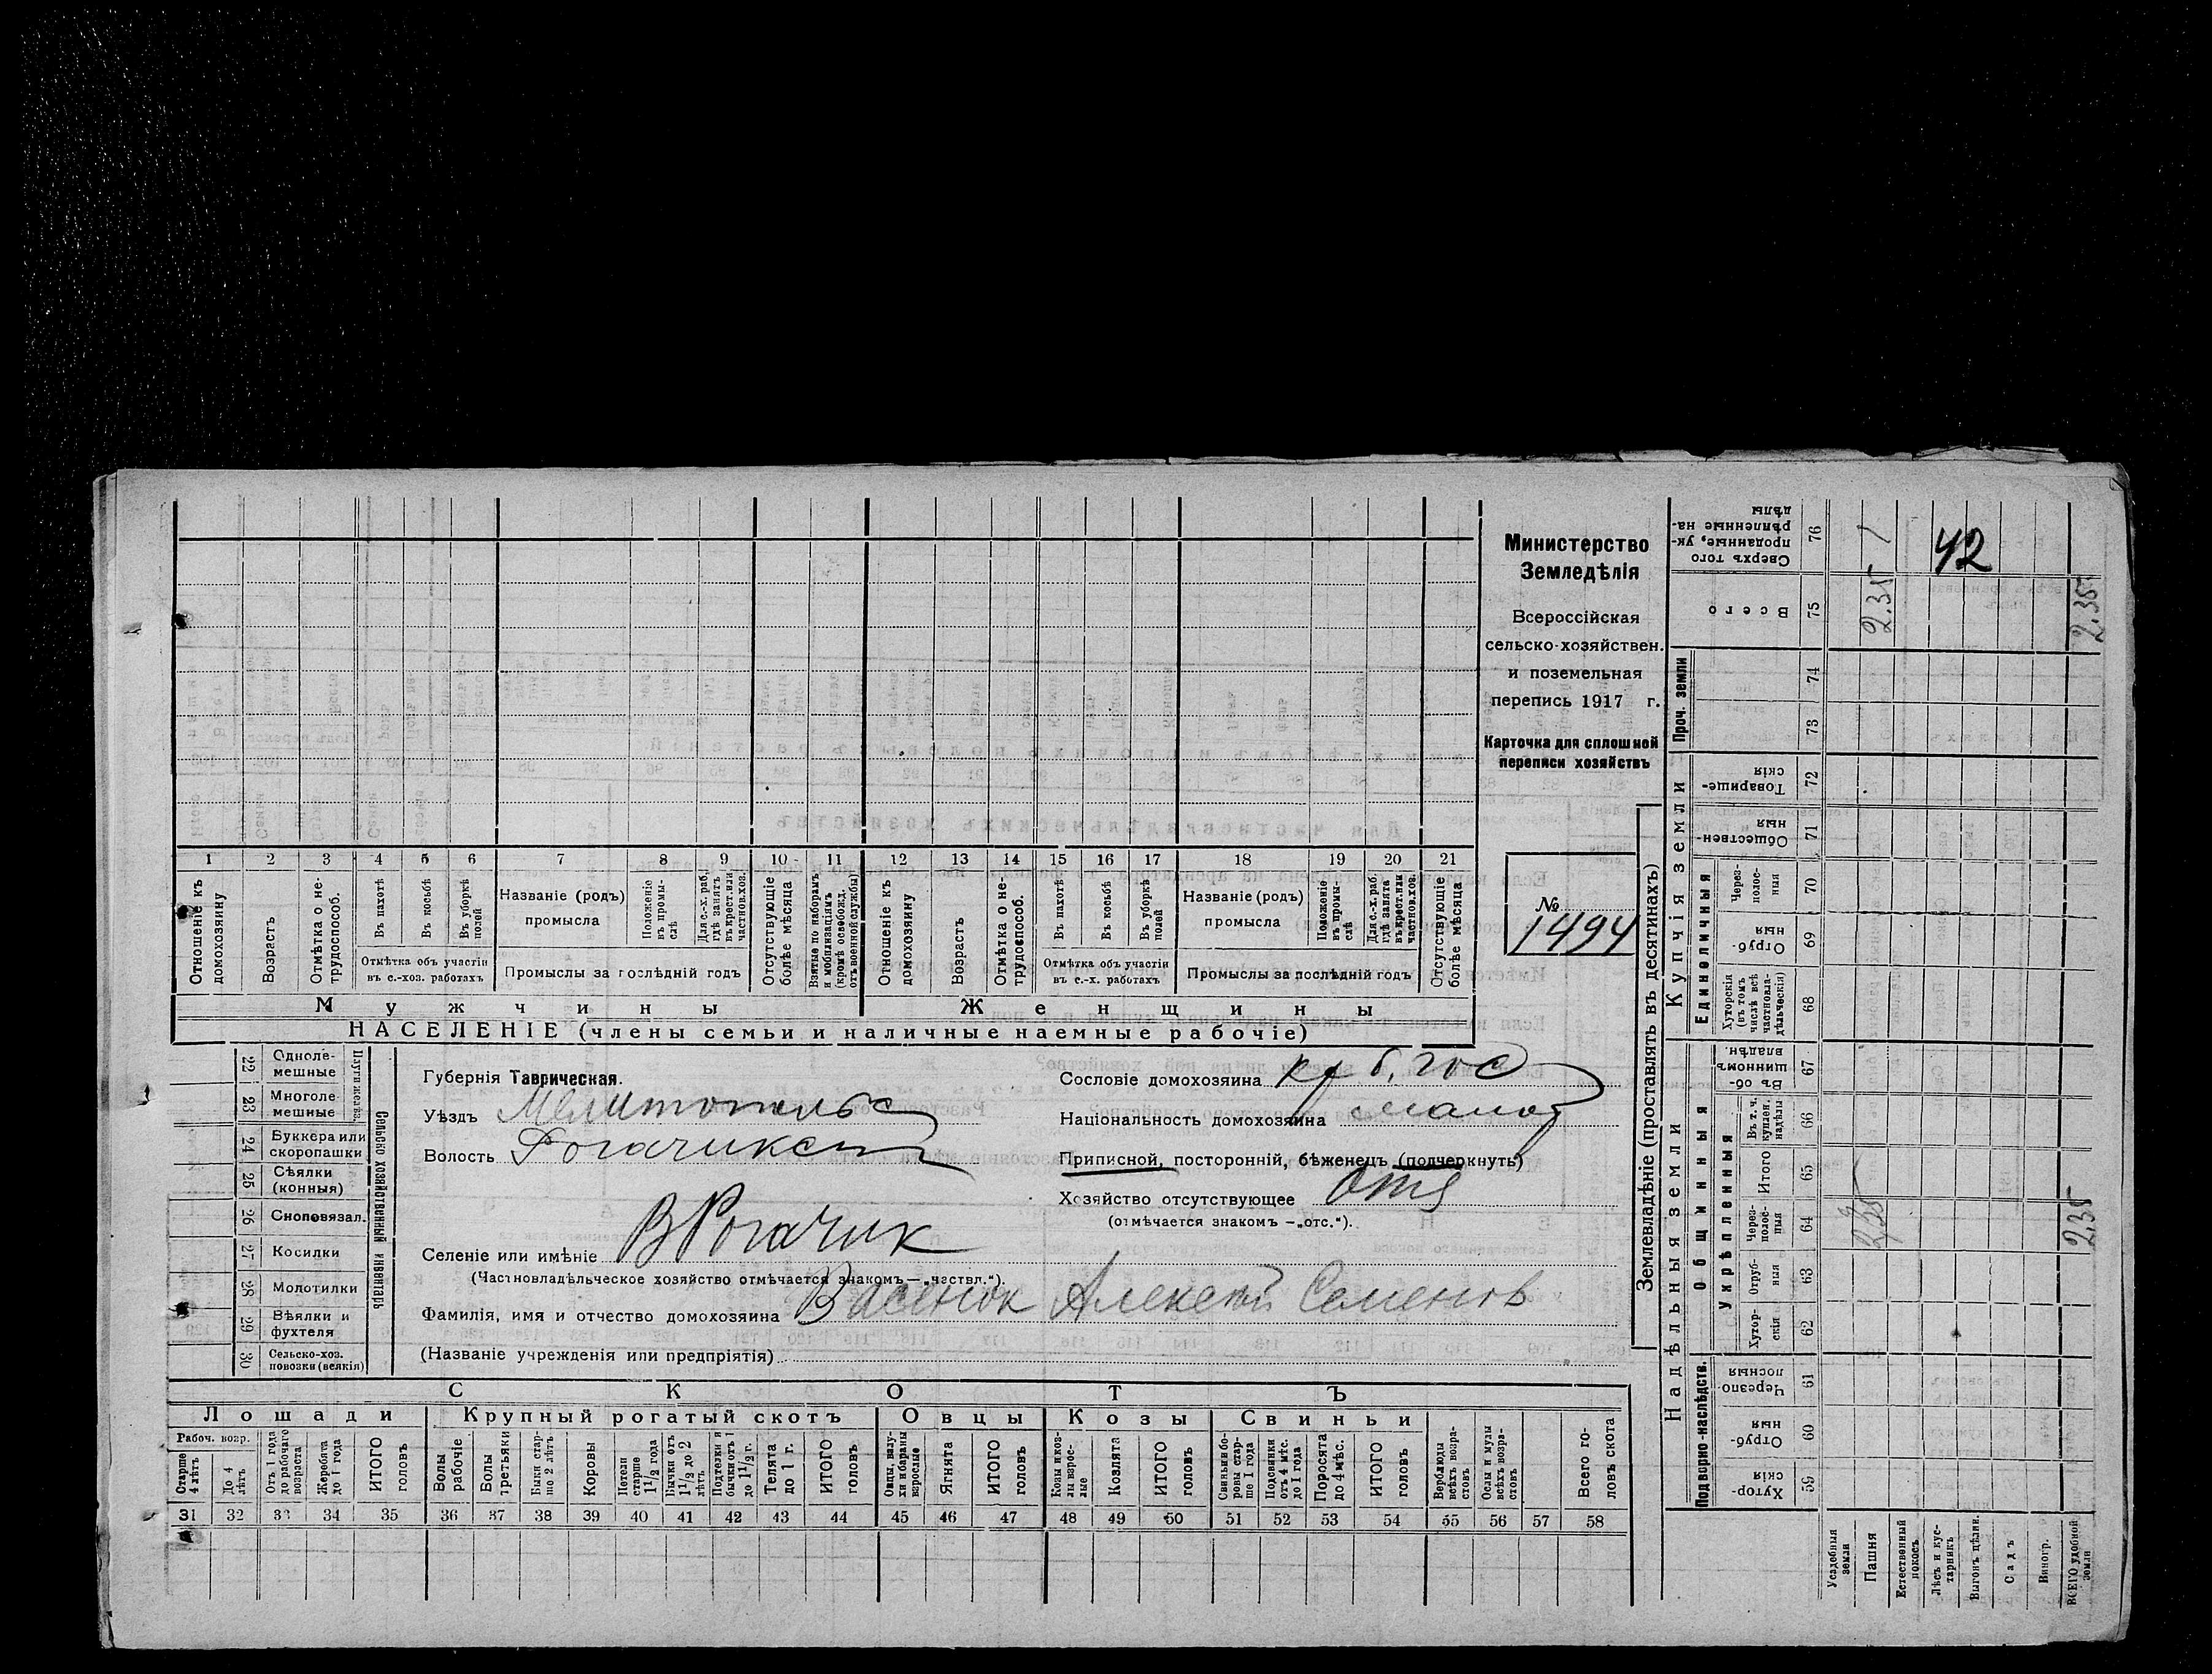 Министерство
Земледѣлія
Всероссійская
сельско-хозяйствен.
и поземельная
перепись 1917 г.
Карточка для сплошней
переписи хозяйствъ
№
1494
42
1 2 3 4 5 6 7 8 9 10 11 12 13 14 15 16 17 18 19 20 21
Отношеніе къ домохозяину
Возрастъ
Отмѣтка о не-трудоспособ.
Въ пахотѣ
Въ косьбѣ
Въ уборкѣ полей
Отмѣтка объ участіи въ с.-хоз. работахъ
Названіе (родъ) промысла
Положеніе въ промы-слѣ
Для с.-х. раб. гдѣ занятъ въ крест. или частнов. хоз.
Промыслы за послѣдній годъ
Отсутствующіе болѣе мѣсяца
Взятые по наборамъ и мобилизаціямъ (кромѣ освобожд. отъ военной службы)
Отношеніе къ домохозяину
Возрастъ
Отмѣтка о не-трудоспособ.
Въ пахотѣ
Въ косьбѣ
Въ уборкѣ полей
Отмѣтка объ участіи въ с.-х. работахъ
Названіе (родъ) промысла
Положеніе въ промы-слѣ
Для с.-х. раб. гдѣ занята въ крест. или частнов. хоз.
Промыслы за послѣдній годъ
Отсутствующіе болѣе мѣсяца
Мужчины
Женщины
НАСЕЛЕНІЕ (члены семьи и наличные наемные рабочіе)
Сельско хозяйственный инвентарь
Плуги желѣз.
22 Одноле-мешные
23 Многоле-мешные
24 Буккера или скоропашки
25 Сѣялки (конныя)
26 Сноповязал.
27 Косилки
28 Молотилки
29 Вѣялки и фухтеля
30 Сельско-хоз. повозки (всякія)
Губернія Таврическая.
Уѣздъ Мелитопольс
Волость Рогачикск
Селеніе или имѣніе В Рогачик
(Частновладѣльческое хозяйство отмѣчается знакомъ—„частвл.“).
Фамилія, имя и отчество домохозяина Васенок Алексей Семенов
(Названіе учрежденія или предпріятія)
Сословіе домохозяина кр б. гос
Національность домохозяина малор
Приписной, посторонній, бѣженецъ (подчеркнуть)
Хозяйство отсутствующее
(отмѣчается знакомъ —„отс.“).
СКОТЪ
Лошади
Крупный рогатый скотъ
Овцы
Козы
Свиньи
Рабоч. возр.
Старше 4 лѣтъ
До 4 лѣтъ
Отъ 1 года до рабочаго возраста
Жеребята до 1 года
ИТОГО головъ
Волы рабочіе
Волы третьяки
Быки стар-ше 2 лѣтъ
Коровы
Нетели старше 1 1/2 года
Бычки отъ 1 1/2 до 2 лѣтъ
Подтелки и бычки отъ 1 до 1 1/2 г.
Телята до 1 г.
ИТОГО головъ
Овцы, валу-хи и бараны взрослые
Ягнята
ИТОГО головъ
Козы и коз-лы взрос-лые
Козлята
ИТОГО головъ
Свиньи и бо-ровы стар-ше 1 года
Подсвинки отъ 4 мѣс. до 1 года
Поросята до 4 мѣс.
ИТОГО головъ
Верблюды всѣхъ возра-стовъ
Ослы и мулы всѣхъ возра-стовъ
Всего го-ловъ скота
31 32 33 34 35 36 37 38 39 40 41 42 43 44 45 46 47 48 49 50 51 52 53 54 55 56 57 58
Землевладѣніе (проставлять въ десятинахъ)
Надѣльныя земли
Купчія земли
Проч. земли
Подворно-наслѣдств.
Общинныя
Укрѣпленныя
Единоличныя
Хутор-скія 59
Отруб-ныя 60
Черезпо-лосныя 61
Хутор-скія 62
Отруб-ныя 63
Через-полос-ныя 64
Итого 65
Въ т. ч. куплен. надѣлы 66
Въ об-щинномъ владѣн. 67
Хуторскія (въ томъ числѣ всѣ частновла-дѣльческія) 68
Отруб-ныя 69
Через-полос-ныя 70
Обществен-ныя 71
Товарище-скія 72
73
74
Всего 75
Сверхъ того проданные, ук-рѣпленные на-дѣлы 76
Усадебныя земли
Пашня
2.35
2.35
Естественный покосъ
Лѣсъ и кус-тарникъ
Выгонъ цѣлин.
Садъ
Виногр.
ВСЕГО удобной земли
2.35
2.35